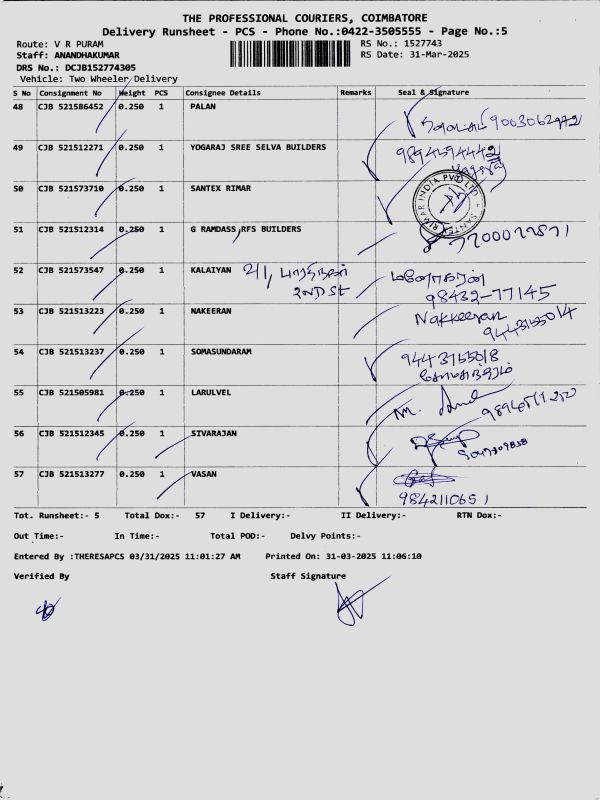 THE PROFESSIONAL COURIERS, COIMBATORE
Delivery Runsheet - PCS - Phone No.:0422-3505555 - Page No.:5
Route: V R PURAM
RS No.: 1527743
Staff: ANANDHAKUMAR
RS Date: 31-Mar-2025
DRS No.: DCJB152774305
Vehicle: Two Wheeler Delivery
S No Consignment No Weight PCS Consignee Details Remarks Seal & Signature
48 CJB 521586452 0.250 1 PALAN
9003062972
49 CJB 521512271 0.250 1 YOGARAJ SREE SELVA BUILDERS
9894594442
50 CJB 521573710 0.250 1 SANTEX RIMAR
RIMAR INDIA PVT LTD
51 CJB 521512314 0.250 1 G RAMDASS,RFS BUILDERS
52 CJB 521573547 0.250 1 KALAIYAN 2/1, பாரதிநகர் மனோகரன்
2ND St 98432-77145
53 CJB 521513223 0.250 1 NAKEERAN Nakkeeran
9443155014
54 CJB 521513237 0.250 1 SOMASUNDARAM 9443155018
சோமசுந்தரம்
55 CJB 521505981 0.250 1 LARULVEL
56 CJB 521512345 0.250 1 SIVARAJAN
57 CJB 521513277 0.250 1 VASAN
9842110651
Tot. Runsheet:- 5 Total Dox:- 57 I Delivery:- II Delivery:- RTN Dox:-
Out Time:- In Time:- Total POD:- Delvy Points:-
Entered By :THERESAPCS 03/31/2025 11:01:27 AM Printed On: 31-03-2025 11:06:10
Verified By Staff Signature